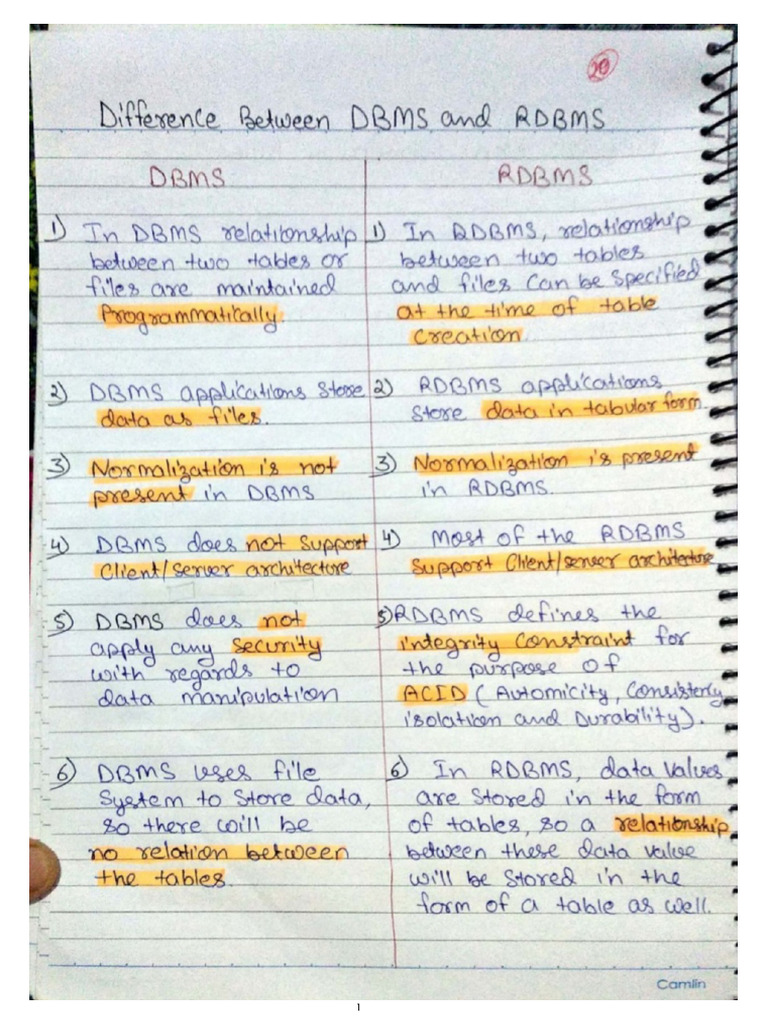 20
Difference Between DBMS and RDBMS
DBMS
1) In DBMS relationship
between two tables or
files are maintained
Programmatically.
2) DBMS applications store
data as files.
3) Normalization is not
present in DBMS
4) DBMS does not support
Client/server architecture
5) DBMS does not
apply any security
with regards to
data manipulation
6) DBMS uses file
System to store data,
so there will be
no relation between
the tables.
RDBMS
1) In RDBMS, relationship
between two tables
and files can be specified
at the time of table
creation.
2) RDBMS applications
store data in tabular form.
3) Normalization is present
in RDBMS.
4) Most of the RDBMS
support Client/server architecture
5) RDBMS defines the
integrity constraint for
the purpose of
ACID (Automicity, Consisterly,
isolation and Durability).
6) In RDBMS, data values
are stored in the form
of tables, so a relationship
between these data value
will be stored in the
form of a table as well.
Camlin
1